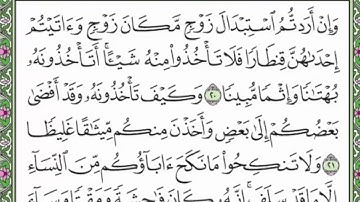 وَإِنْ أَرَدتُّمُ ٱسْتِبْدَالَ زَوْجٍ مَّكَانَ زَوْجٍ وَءَاتَيْتُمْ
إِحْدَىٰهُنَّ قِنطَارًا فَلَا تَأْخُذُوا۟ مِنْهُ شَيْـًٔا ۚ أَتَأْخُذُونَهُۥ
بُهْتَـٰنًا وَإِثْمًا مُّبِينًا ٢٠ وَكَيْفَ تَأْخُذُونَهُۥ وَقَدْ أَفْضَىٰ
بَعْضُكُمْ إِلَىٰ بَعْضٍ وَأَخَذْنَ مِنكُم مِّيثَـٰقًا غَلِيظًا
٢١ وَلَا تَنكِحُوا۟ مَا نَكَحَ ءَابَآؤُكُم مِّنَ ٱلنِّسَآءِ
إِلَّا مَا قَدْ سَلَفَ ۚ إِنَّهُۥ كَانَ فَـٰحِشَةً وَمَقْتًا وَسَآءَ